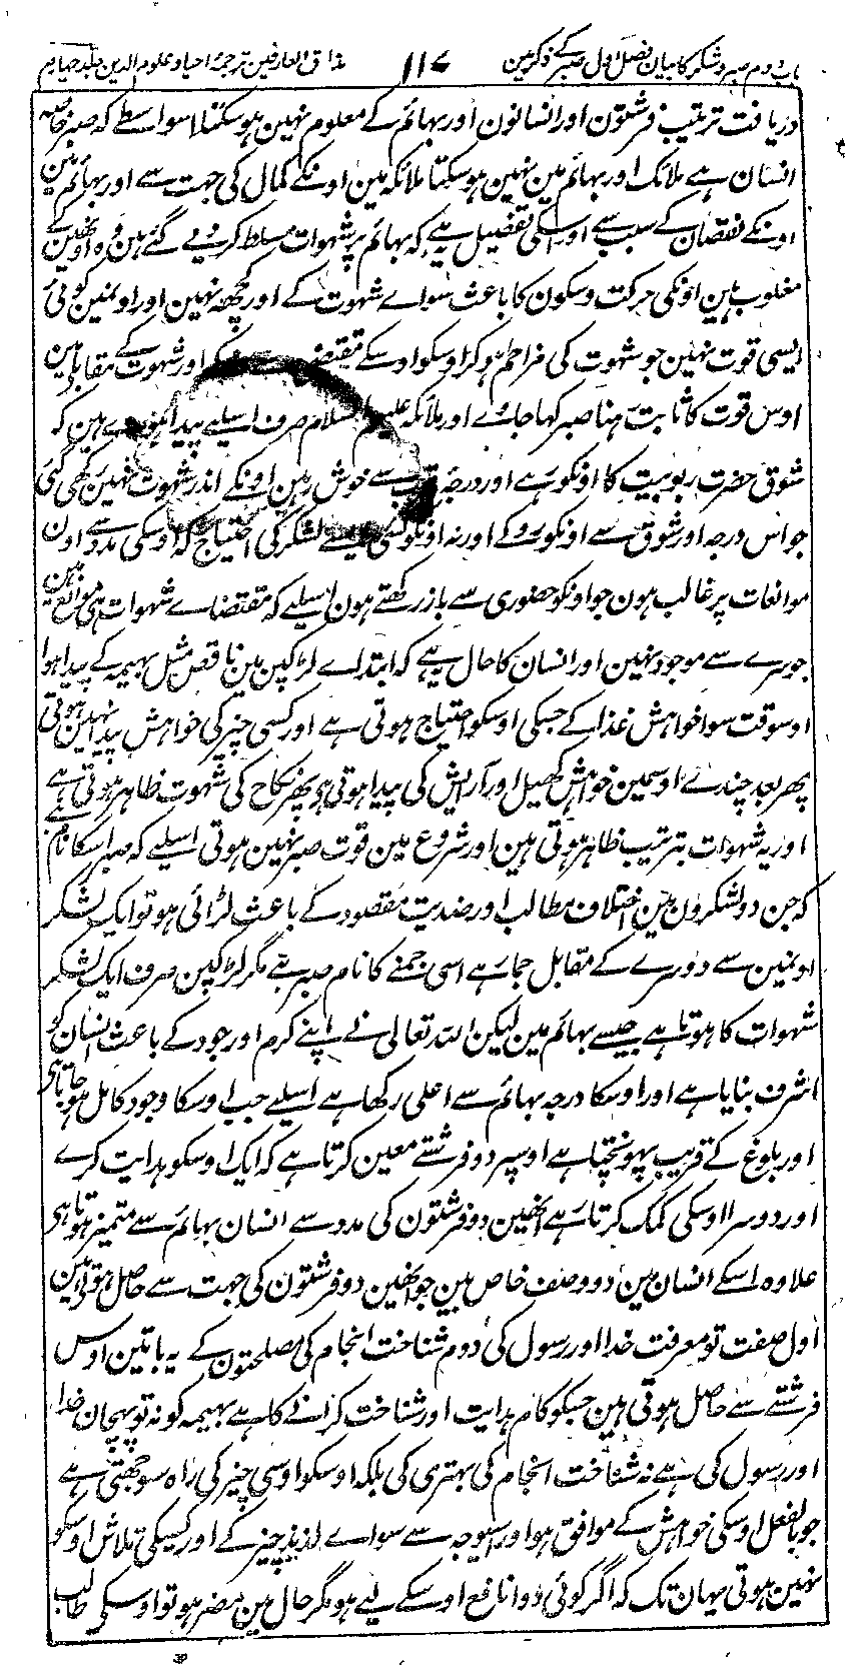 باب دوم صبر و شکر کا بیان فصل اول صبر کے ذکر مین ۱۱۷ مذاق العارفین ترجمۂ احیاء علوم الدین جلد چہارم
دریافت ترتیب فرشتون اور انسانون اور بہائم کے معلوم نہین ہو سکتا اسواسطے کہ صبر خاصہ
انسان ہے ملائک اور بہائم مین نہین ہو سکتا ملائکہ مین اونکے کمال کی جہت سے اور بہائم مین
اونکے نقصان کے سبب سے اور اسکی تفصیل یہ ہے کہ بہائم پر شہوات مسلط کر دیے گئے ہین وہ اونھین کے
مغلوب ہین اونکی حرکت و سکون کا باعث سواے شہوت کے اور کچھہ نہین اور اونمین کوئی
ایسی قوت نہین جو شہوت کی مزاحم ہو کر اوسکو اوسکے مقتضے سے اور شہوت کے مقابلہ مین
اوس قوت کا ثابت رہنا صبر کہا جاوے اور ملائکہ علیہم السلام صرف اسلیے پیدا ہوے ہین کہ
شوق حضرت ربوبیت کا اونکو رہے اور درجۂ قرب سے خوش رہین اونکے اندر شہوت نہین رکھی گئی
جو اس درجہ اور شوق سے اونکو روکے اور نہ اونکو کسی ایسے لشکر کی احتیاج کہ اوسکی مدد سے اون
موانعات پر غالب ہون جو اونکو حضوری سے باز رکھتے ہون اسلیے کہ مقتضاے شہوات ہی موانع ہین
جو سرے سے موجود نہین اور انسان کا حال یہ ہے کہ ابتداے لڑکپن مین ناقص مثل بہیمہ کے پیدا ہوا
اوسوقت سوا خواہش غذا کے جسکی اوسکو احتیاج ہوتی ہے اور کسی چیز کی خواہش پیدا نہین ہوتی
پھر بعد چندے اوسمین خواہش کھیل اور آرایش کی پیدا ہوتی ہو پھر نکاح کی شہوت ظاہر ہوتی ہے
اور یہ شہوات بترتیب ظاہر ہوتی ہین اور شروع مین قوت صبر نہین ہوتی اسلیے کہ صبر اسکا نام ہے
کہ جن دو لشکرون مین اختلاف مطالب اور ضدیت مقصود کے باعث لڑائی ہو تو ایک لشکر
اونمین سے دوسرے کے مقابل جما رہے اسی جمنے کا نام صبر ہے مگر لڑکپن مین صرف ایک لشکر
شہوات کا ہوتا ہے جیسے بہائم مین لیکن اللہ تعالی نے اپنے کرم اور جود کے باعث انسان کو
اشرف بنایا ہے اور اوسکا درجہ بہائم سے اعلی رکھا ہے اسلیے جب اوسکا وجود کامل ہو جاتا ہی
اور بلوغ کے قریب پہونچتا ہے اوسپر دو فرشتے معین کرتا ہے کہ ایک اوسکو ہدایت کرے
اور دوسرا اوسکی کمک کرتا رہے انھین دو فرشتون کی مدد سے انسان بہائم سے متمیز ہوتا ہی
علاوہ اسکے انسان مین دو وصف خاص ہین جو انھین دو فرشتون کی جہت سے حاصل ہوتی ہین
اول صفت تو معرفت خدا اور رسول کی دوم شناخت انجام کی مصلحتون کے یہ باتین اوس
فرشتے سے حاصل ہوتی ہین جسکو کام ہدایت اور شناخت کرانے کا ہے بہیمہ کو نہ تو پہچان خدا
اور رسول کی ہے نہ شناخت انجام کی بہتری کی بلکہ اوسکو اوسی چیز کی راہ سوجھتی ہے
جو بالفعل اوسکی خواہش کے موافق ہو اور اسیوجہ سے سواے لذیذ چیز کے اور کسیکی تلاش اوسکو
نہین ہوتی یہان تک کہ اگر کوئی دوا نافع اوسکے لیے ہو مگر حال مین مضر ہو تو اوسکی طالب